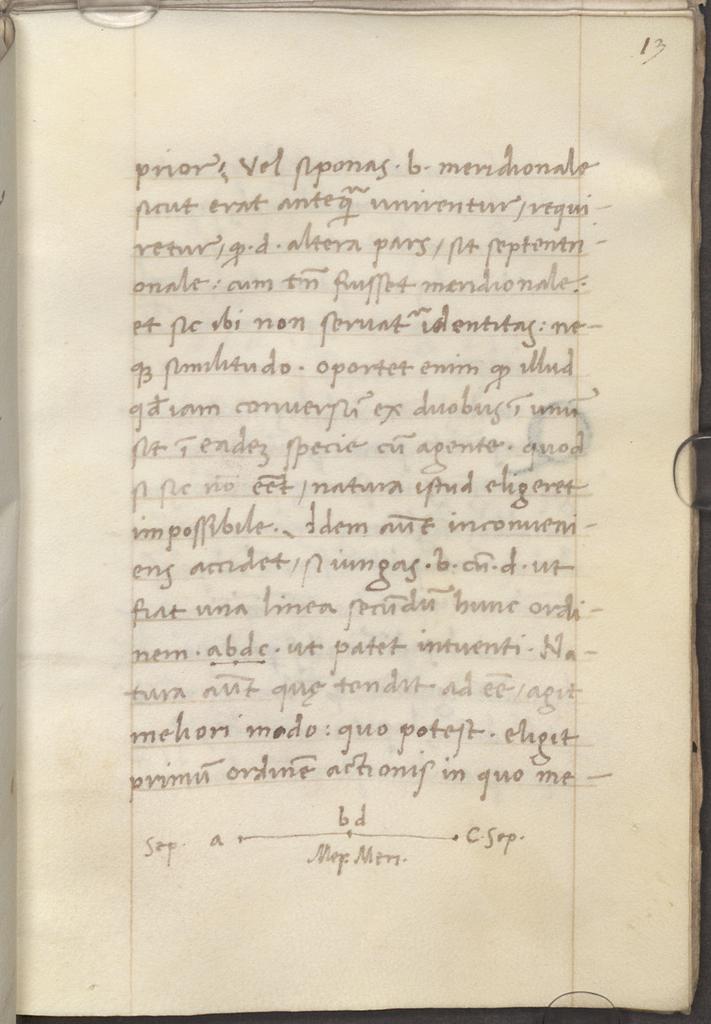 13
prior; Vel si ponas .b. meridionale
sicut erat anteq̃ᵃ unirentur, requi-
retur, ꝙ .d. altera pars, sit septentri-
onale: cum tñ fuisset meridionale:
et sic ibi non servatᵘʳ identitas: ne-
qꝫ similitudo. oportet enim ꝙ illud
qđ iam conversũ ex duobus ĩ unũ
sit ĩ eadeꝫ specie cũ agente. quod
si sic nõ eēt, natura istud eligeret
impossibile. Idem aũt inconveni-
ens accidet, si iungas .b. cũ .d. ut
fiat una linea secundũ hunc ordi-
nem .abdc. ut patet intuenti. Na-
tura aũt quę tendit ad eē, agit
meliori modo: quo potest. eligit
primũ ordinẽ actionis in quo me-
b d
Sep. a C. Sep.
Mer. Meri.